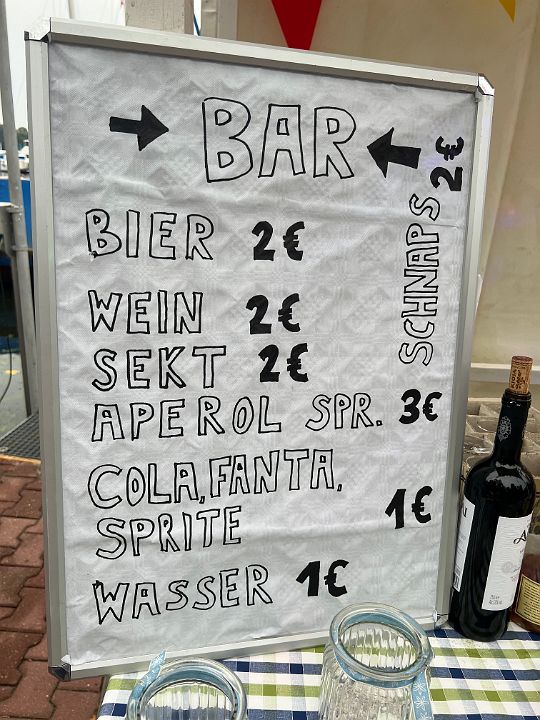 BAR
BIER 2€
WEIN 2€
SEKT 2€
APEROL SPR. 3€
COLA, FANTA,
SPRITE 1€
WASSER 1€
SCHNAPS 2€